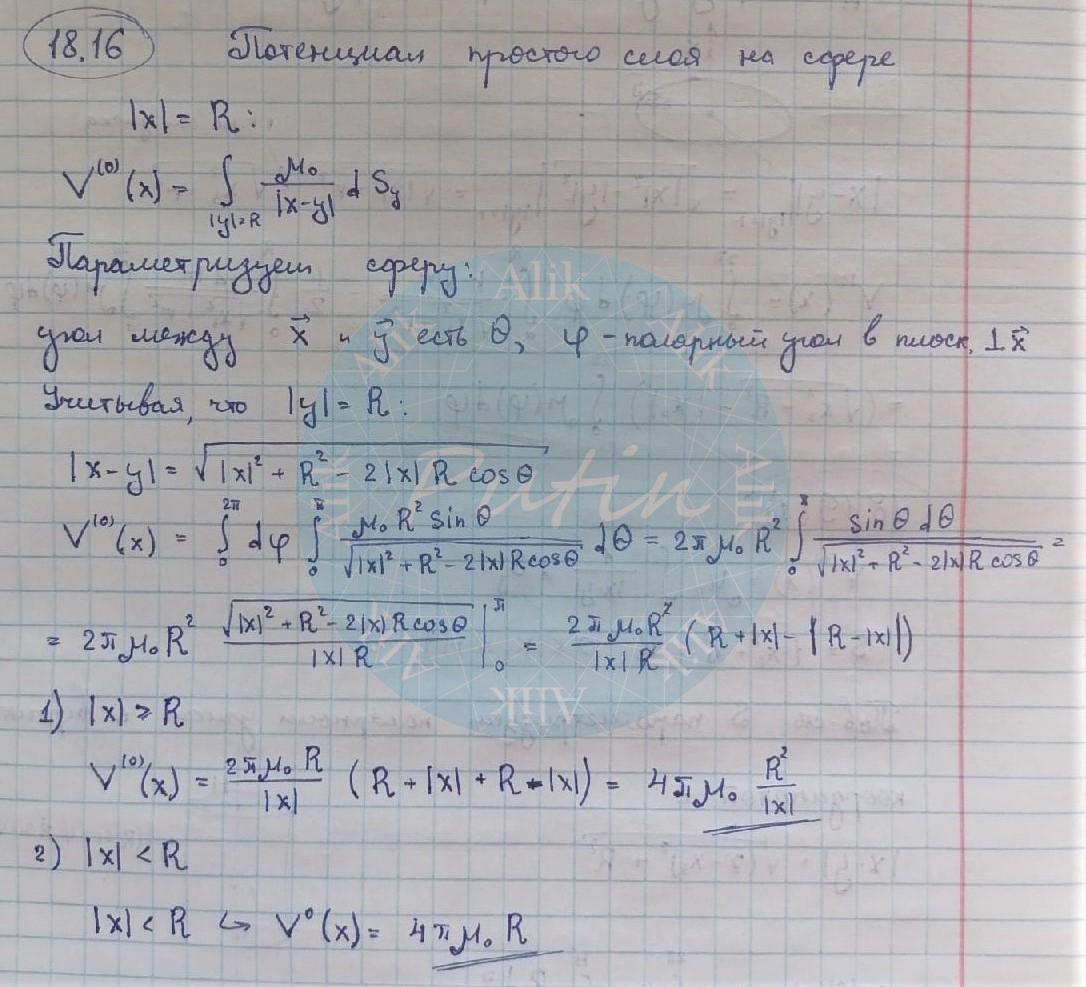 18.16 Потенциал простого слоя на сфере
|x| = R:
V⁽⁰⁾(x) = ∫_{|y|=R} μ₀/|x-y| dS_y
Параметризуем сферу:
угол между x⃗ и y⃗ есть θ, φ - полярный угол в плоск. ⊥ x⃗
Учитывая, что |y| = R:
|x-y| = √(|x|² + R² - 2|x| R cosθ)
V⁽⁰⁾(x) = ∫₀^{2π} dφ ∫₀^π μ₀ R² sinθ / √(|x|² + R² - 2|x| R cosθ) dθ = 2π μ₀ R² ∫₀^π sinθ dθ / √(|x|² + R² - 2|x| R cosθ) =
= 2π μ₀ R² √(|x|² + R² - 2|x| R cosθ) / |x| R |₀^π = 2π μ₀ R² / |x| R (R + |x| - |R - |x||)
1) |x| ≥ R
V⁽⁰⁾(x) = 2π μ₀ R / |x| (R + |x| + R - |x|) = 4π μ₀ R²/|x|
2) |x| < R
|x| < R ↪ V⁰(x) = 4π μ₀ R
Alik
Alik
Alik
Alik
Alik
Putin
Alik
Alik
Alik